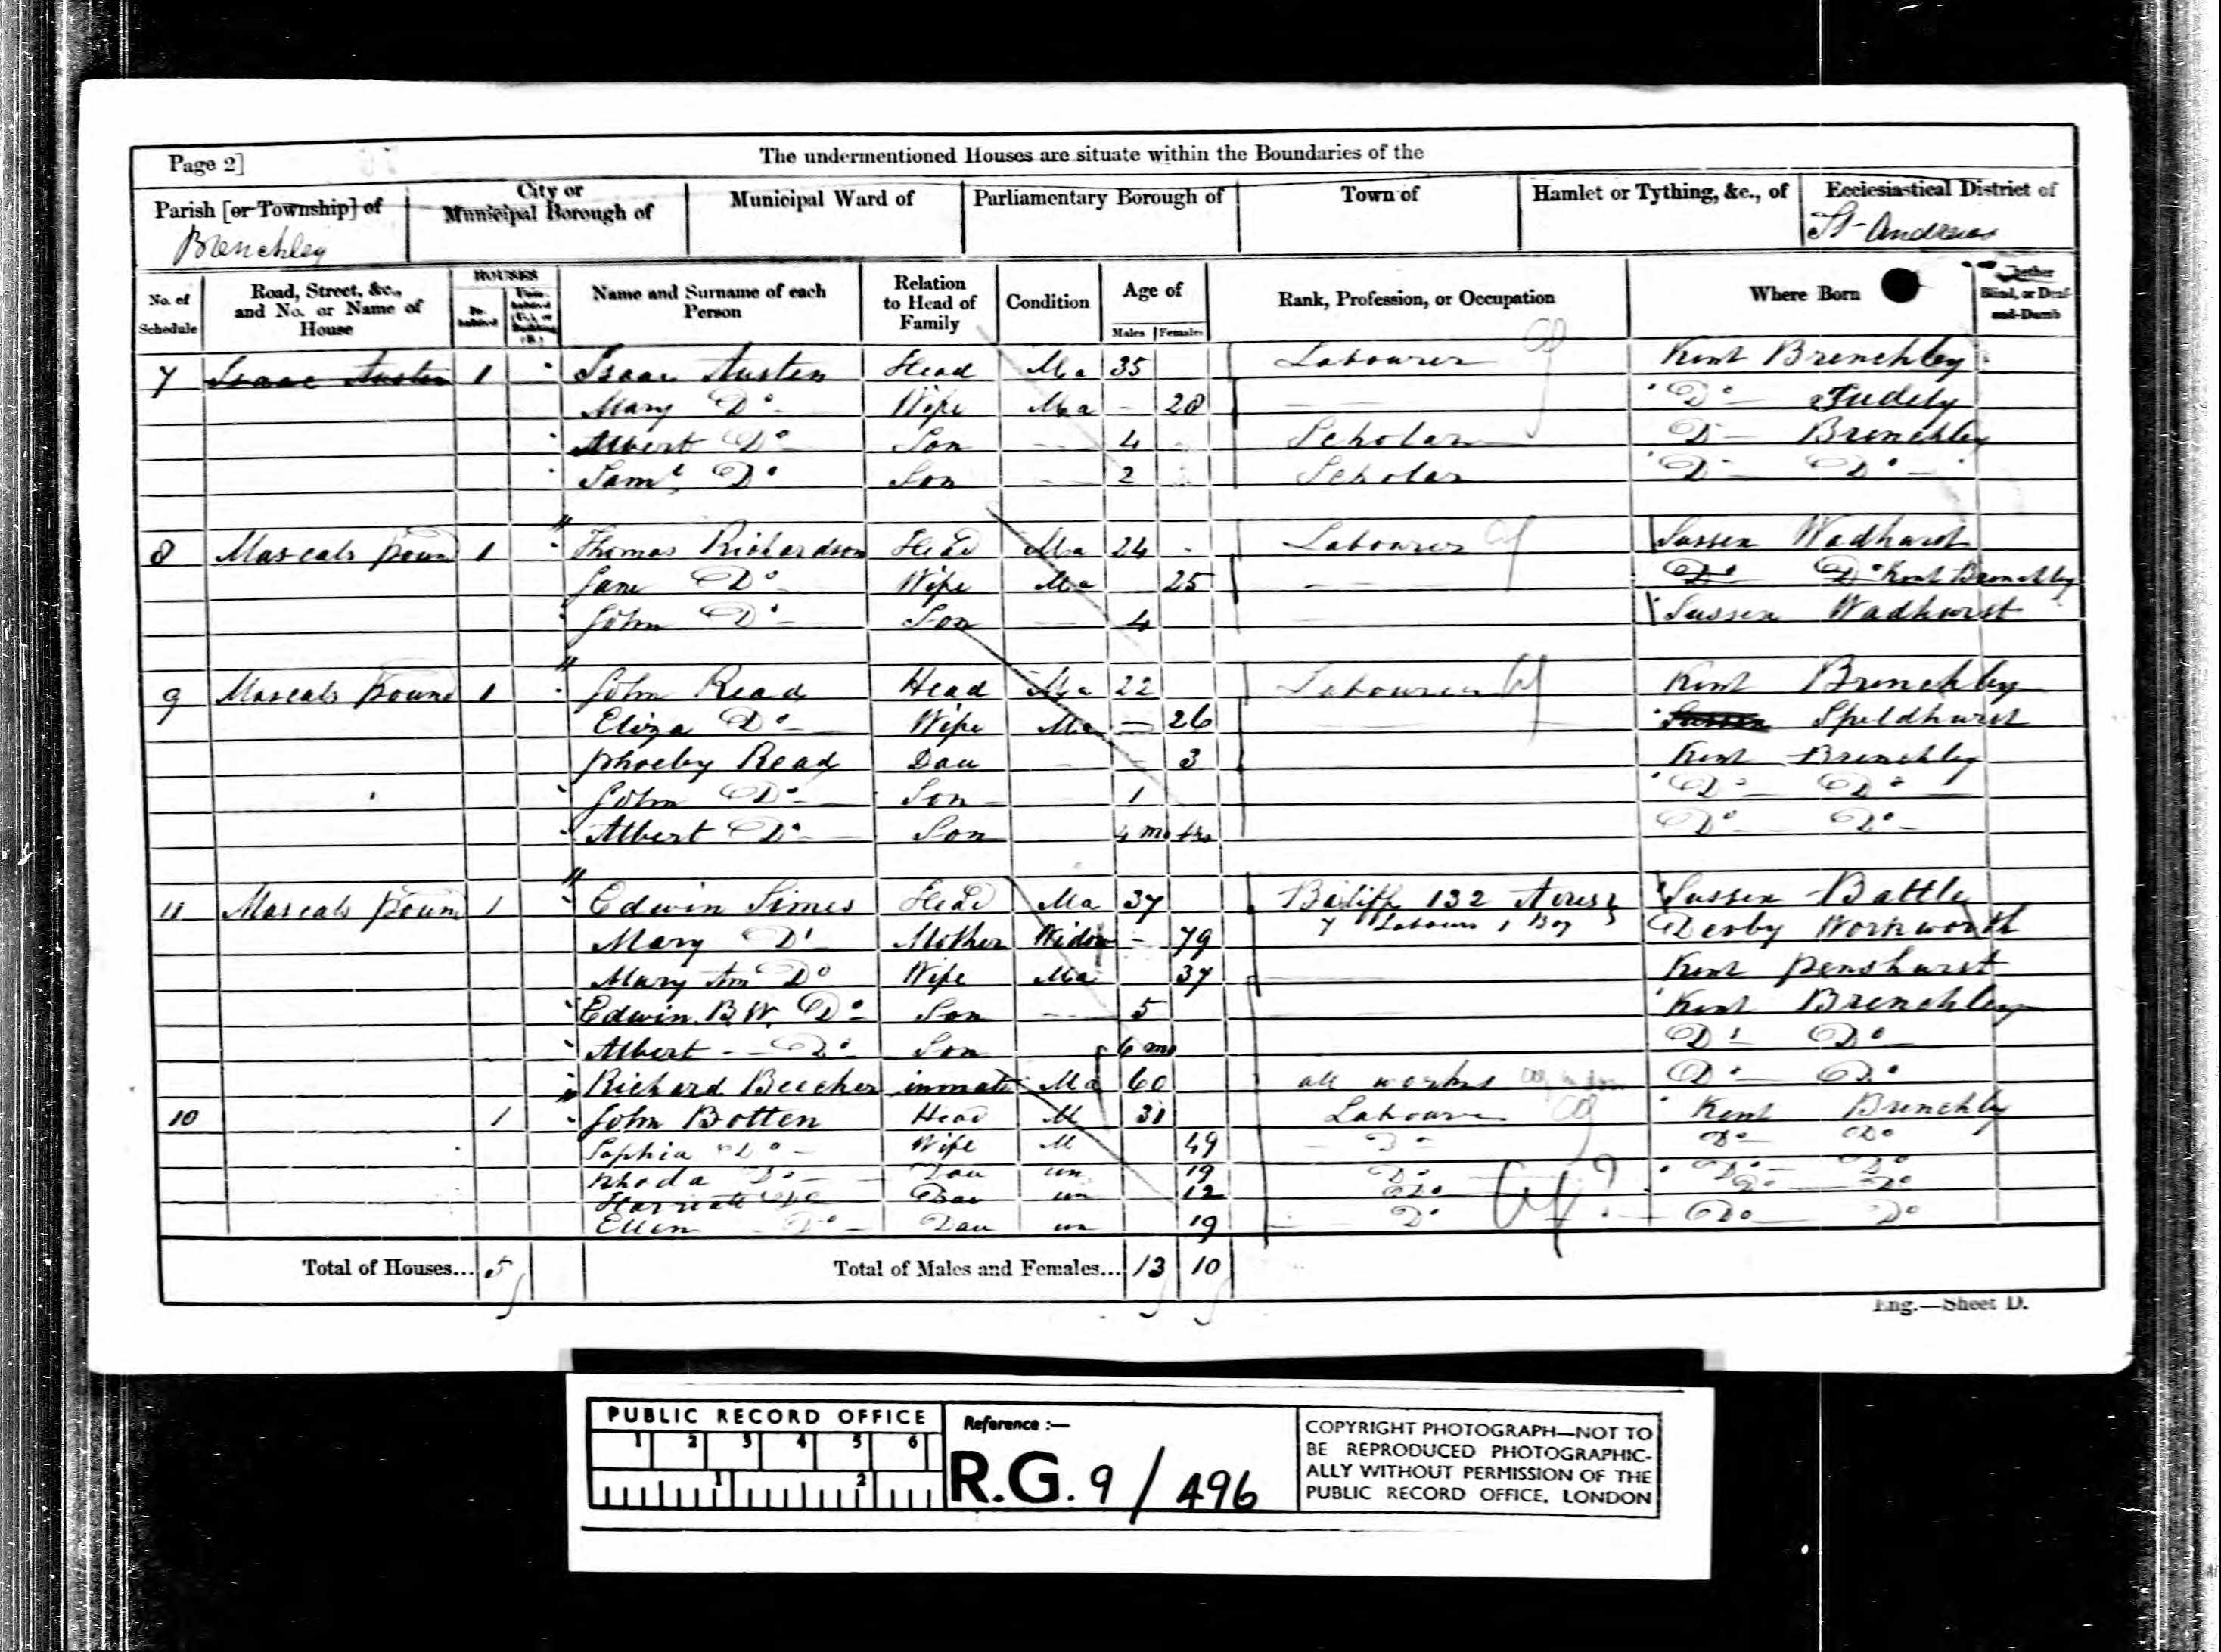 Page 2]
The undermentioned Houses are situate within the Boundaries of the
Parish [or Township] of Brenchley
City or Municipal Borough of
Municipal Ward of
Parliamentary Borough of
Town of
Hamlet or Tything, &c., of
Ecclesiastical District of St Andrews
No. of Schedule
Road, Street, &c., and No. or Name of House
HOUSES
Name and Surname of each Person
Relation to Head of Family
Condition
Age of
Males Females
Rank, Profession, or Occupation
Where Born
Whether Blind, or Deaf-and-Dumb
7 Isaac Austen 1 Isaac Austen Head Ma 35 Labourer Kent Brenchley
Mary Do Wife Ma 28 Do Tudely
Albert Do Son 4 Scholar D Brenchley
Saml Do Son 2 Scholar D Do
8 Mascals Poun 1 Thomas Richardson Head Ma 24 Labourer Sussex Wadhurst
Jane Do Wife Ma 25 Do Do Kent Brenchley
John Do Son 4 Sussex Wadhurst
9 Mascals Pound 1 John Read Head Ma 22 Labourer Kent Brenchley
Eliza Do Wife Ma 26 Sussex Speldhurst
Phoeby Read Dau 3 Kent Brenchley
John Do Son 1 Do Do
Albert Do Son 4 mo Do Do
11 Mascals Poun 1 Edwin Simes Head Ma 37 Bailiff 132 Acres Sussex Battle
Mary Do Mother Widow 79 7 Labours 1 Boy Derby Workworth
Mary Ann Do Wife Ma 37 Kent Penshurst
Edwin B.W. Do Son 5 Kent Brenchley
Albert Do Son 6 mo Do Do
Richard Beecher inmate Ma 60 all works Do Do
10 1 John Botten Head M 31 Labourer Kent Brenchley
Sophia Do Wife M 49 Do Do Do
Rhoda Do Dau un 19 Do Do Do
Harriett Do Dau un 12 Do Do Do
Ellen Do Dau un 19 Do Do Do
Total of Houses... 5
Total of Males and Females... 13 10
Eng.—Sheet D.
PUBLIC RECORD OFFICE
1 2 3 4 5 6
1 2
Reference :—
R.G. 9 / 496
COPYRIGHT PHOTOGRAPH—NOT TO
BE REPRODUCED PHOTOGRAPHIC-
ALLY WITHOUT PERMISSION OF THE
PUBLIC RECORD OFFICE, LONDON